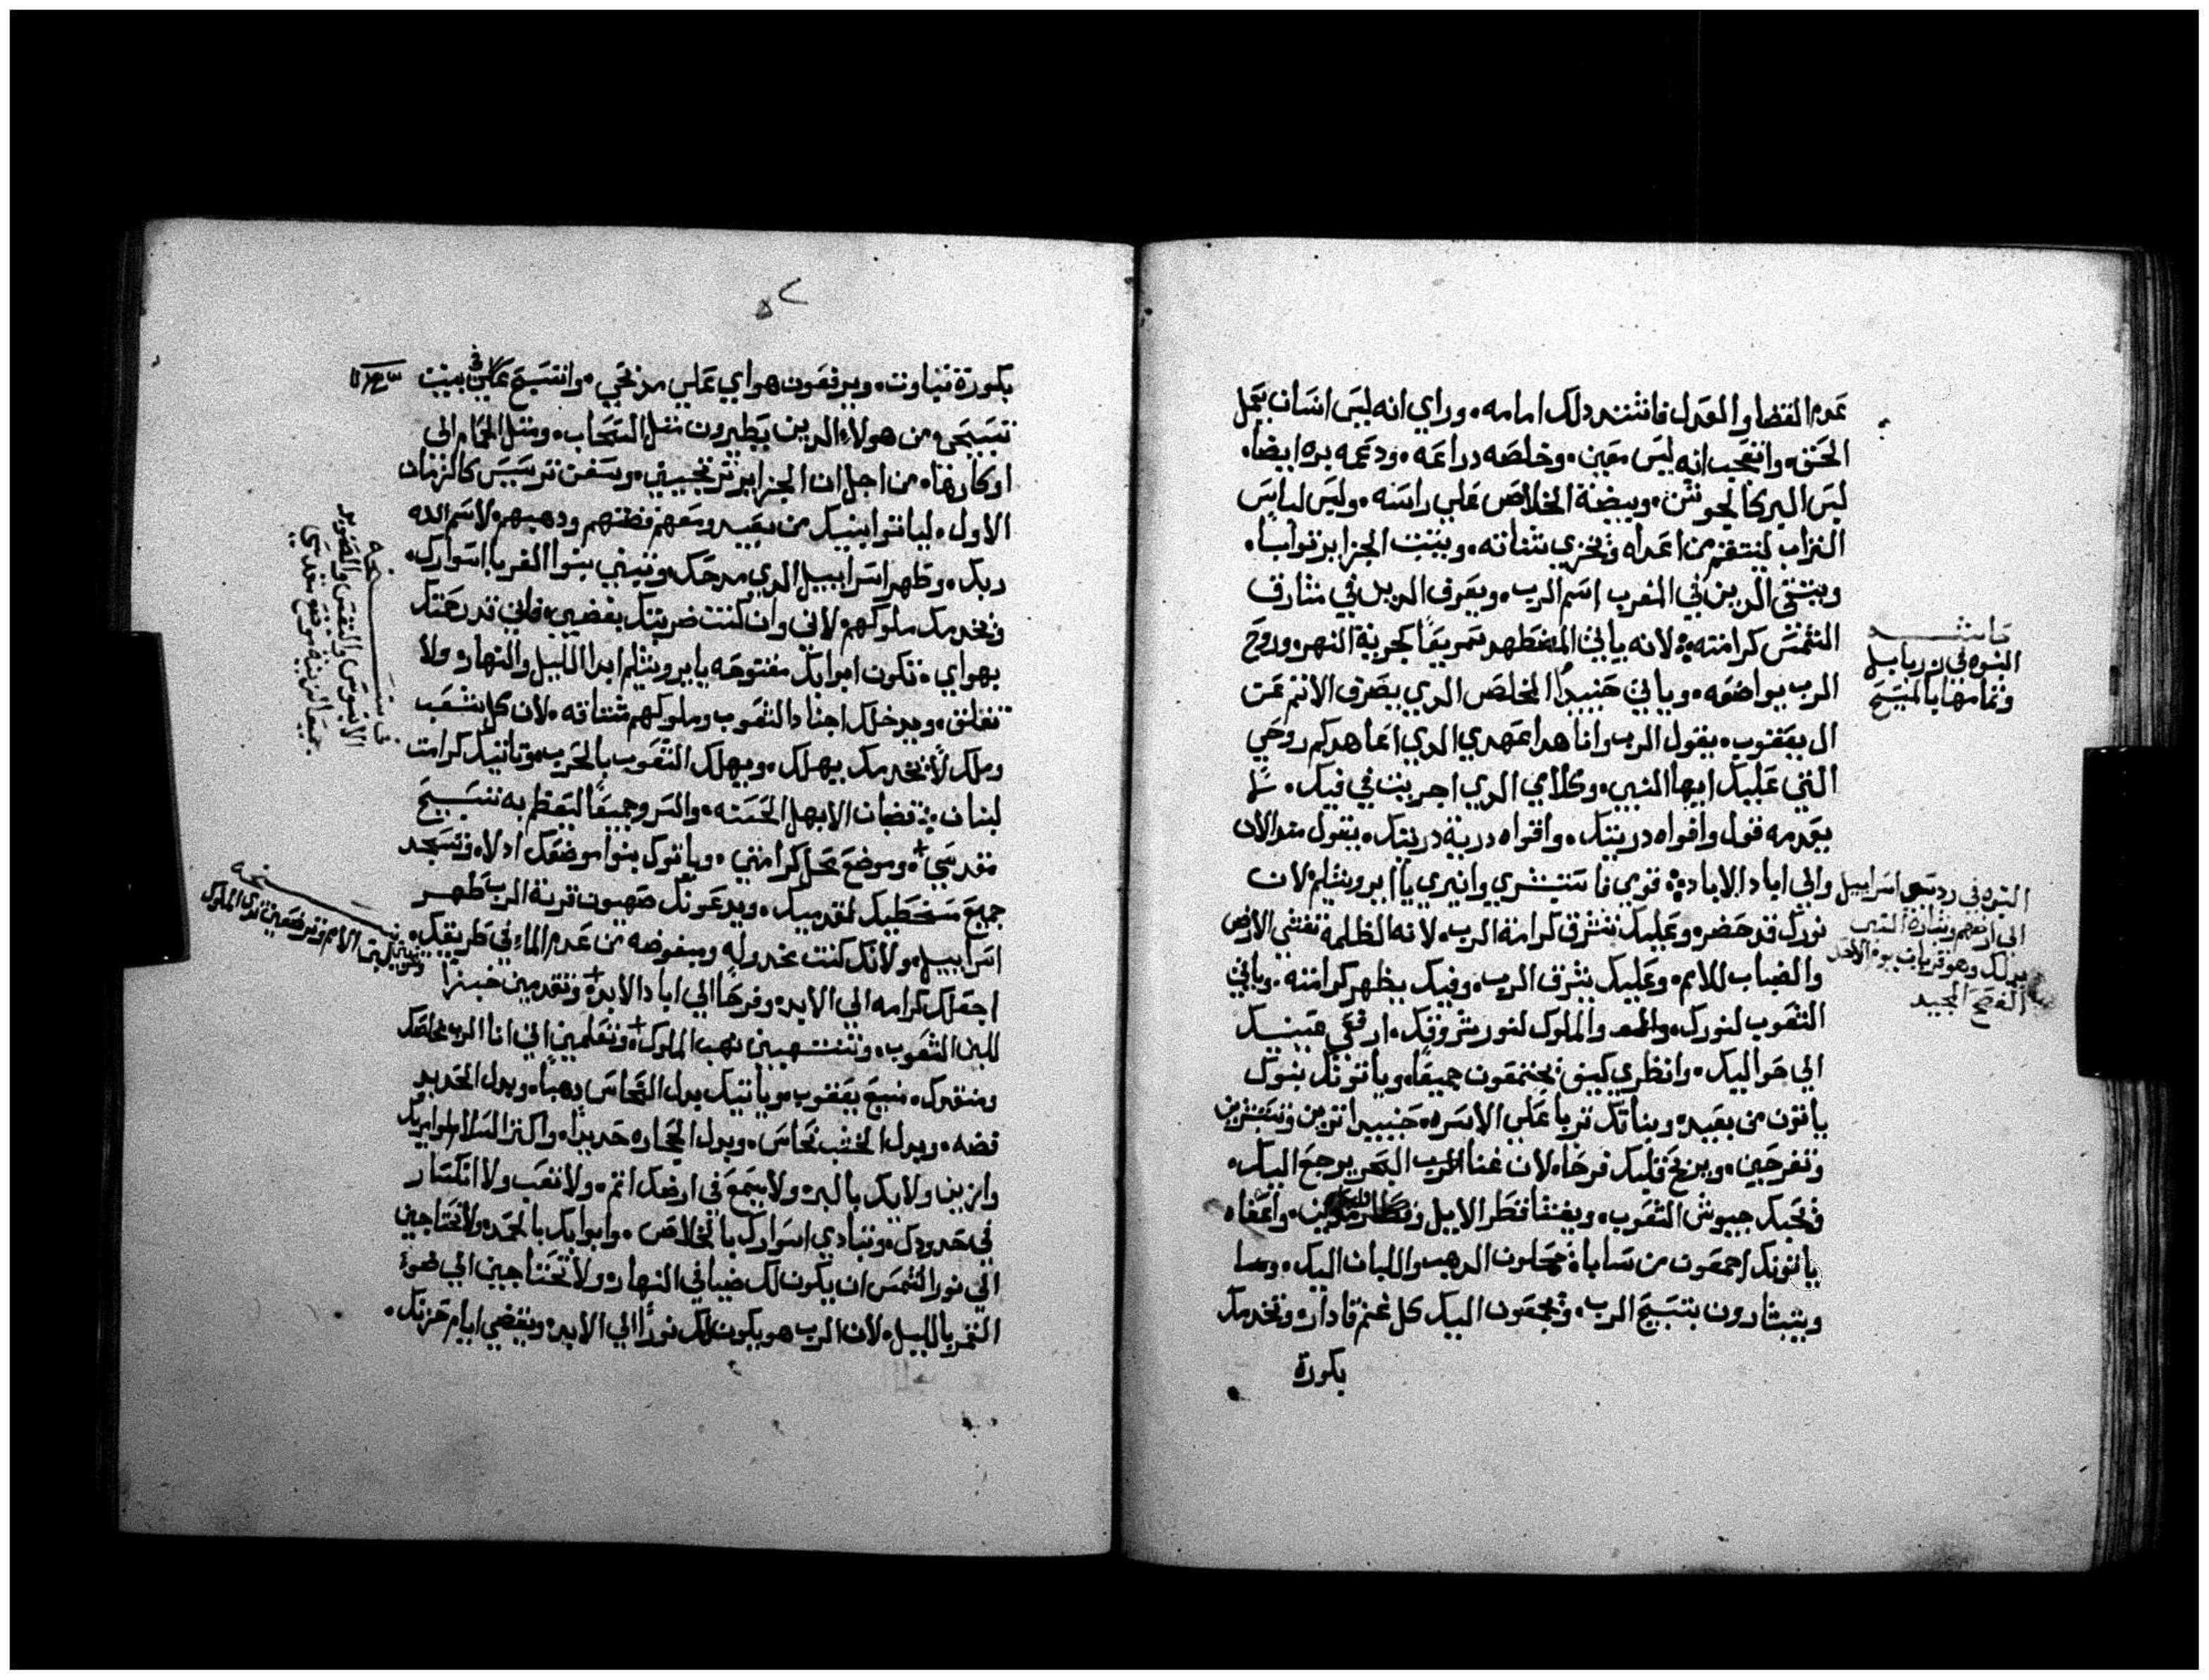 عدم القضا والعدل فاشتد دلك امامه. وراي انه ليس انسان يعمل
الحق. واتعجب انه ليس معين. وخلصه دراعه. ودعمه بره ايضا.
لبس البر كالجوشن. وبيضة الخلاص علي راسه. ولبس لباس
لينتقم من اعداه وتخزي شناته. ويثبت الجزاير ثوابا.
ويتقي الدين في المغرب اسم الرب. ويعرف الدين في مشارق
الشمس كرامته. لانه ياتي المضطهد سريعا كجرية النهر. وروح
الرب يواضعه. وياتي حنييدا المخلص الدي يصرف الاثم عن
ال يعقوب. يقول الرب وانا هدا عهدي الدي اعاهدكم روحي
التي عليك ايها النبي. وكلامي الدي اجريت في فيك. لا
يعدمه قول وافواه دريتك. وافواه درية دريتك. يقول مند الان
والي اباد الاباد. قومي فاستبشري وانيري يا ايروشليم لان
نورك قد حضر. وعليك تشرق كرامة الرب. لانه الظلمة تغشي الارض
والضباب للامم. وعليك يشرق الرب. وفيك يظهر كرامته. وياتي
الشعوب لنورك. والملوك لنور شروقك. ارفعي عينيك
الي حواليك. وانظري كيف يجتمعون جميعا. وياتونك بنوك
ياتون من بعيد. وبناتك تربا علي الاسره. حنييد اترين وتستبشرين
وتفرحين. وينرنح قلبك فرحا. لان غنا البحر يرجع اليك.
وتحيك جيوش الشعوب. ويغشا قطر الابل واعفاه
ياتونك اجمعون من سابا. يحملون الدهب واللبان اليك. وسا
ويتبشارون بتسبيح الرب. وتجمعون اليك كل غنم قادار. وتخدمك
بكورة
حاشيه
النبوه في زربابل
وتمامها بالمسيح
النبوه في رد سبي اسراييل
الي ارضهم وبشارة النبي
بدلك وهو قريات يوم الاحد
الفصح المجيد
٥٢
بكورة نباوت. ويرفعون هواي علي مدبحي. وانتسبح علي بيت
تسبيحي. من هولاء الدين يطيرون مثل السحاب. ومثل الحمام الي
اوكارها. من اجل ان الجزاير ترتجيني. وسفن ترسيس كالزمان
الاول. لياتوا بنيك من بعيد ومعهم فضتهم ودهبهم لاسم الله
ربك. وطهر اسراييل الدي مدحك. وتبني بنوا الغربا اسوارك.
وتخدمك ملوكهم لاني وان كنت ضربتك بغضبي. فاني قد رحمتك
بهواي. تكون ابوابك مفتوحه يا يروشليم ابدا الليل والنهار. ولا
تغلق. ويدخلك اجناد الشعوب وملوكهم مشتاقه. لان كل شعب
وملك لا يخدمك يهلك. ويهلك الشعوب بالحرب. وتاتيك كرامت
لبنان. قضبان الابهل الحسنه. والسرو جميعا ليعظم به تسبيح
مقدسي. وموضع محل كرامتي. وياتوك بنوا موضعك ادلاء. وتسجد
جميع مسخطيك لقدميك. ويدعونك صهيون قرية الرب طهر
اسراييل. ولانك كنت مخدوله ومبغوضه من عدم الماء في طريقك.
اجعلك كرامه الي الابد. وفرحا الي اباد الابد. وتقدمين خبزا
للبن الشعوب. وتشتهين نهب الملوك. وتعلمين اني انا الرب مخلصك
ومنقدك. منيع يعقوب. وياتيك بدل النحاس دهبا. وبدل الحديد
فضه. وبدل الخشب نحاس. وبدل الحجاره حديدا. واكثر السلام
وازين ولاتك بالبر. ولا يسمع في ارضك اثم. ولا تعب ولا انكسار
في حدودك. وتنادي اسوارك بالخلاص. وابوابك بالحمد. ولا تحتاجين
الي نور الشمس ان يكون لك ضيا في النهار. ولا تحتاجين الي ضوء
القمر بالليل. لان الرب هو يكون لك نورا الي الابد. وتنقضي ايام حزنك.
الابنوس والنقس والصنوبر
جميعا لزينة موضع مقدسي
نسخه